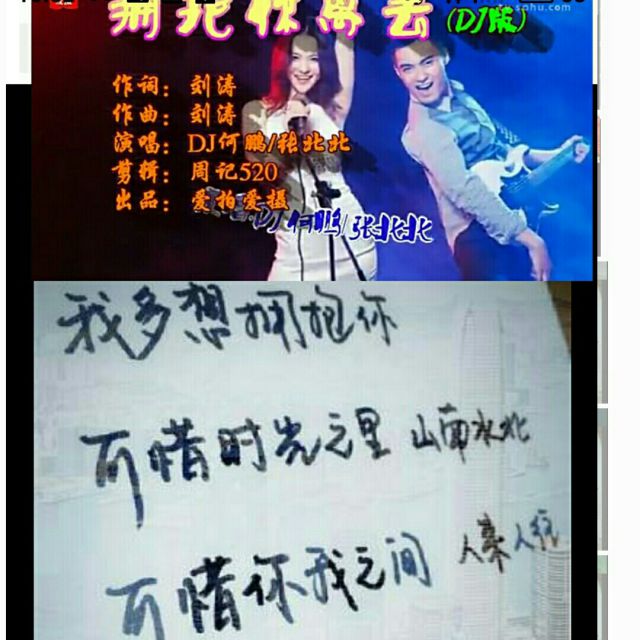 tv.sohu.com
拥抱你离去(DJ版)
作词：刘涛
作曲：刘涛
演唱：DJ何鹏/张北北
剪辑：周记520
出品：爱拍爱摄
DJ何鹏/张北北
我多想拥抱你
可惜时光之里 山南水北
可惜你我之间 人来人往